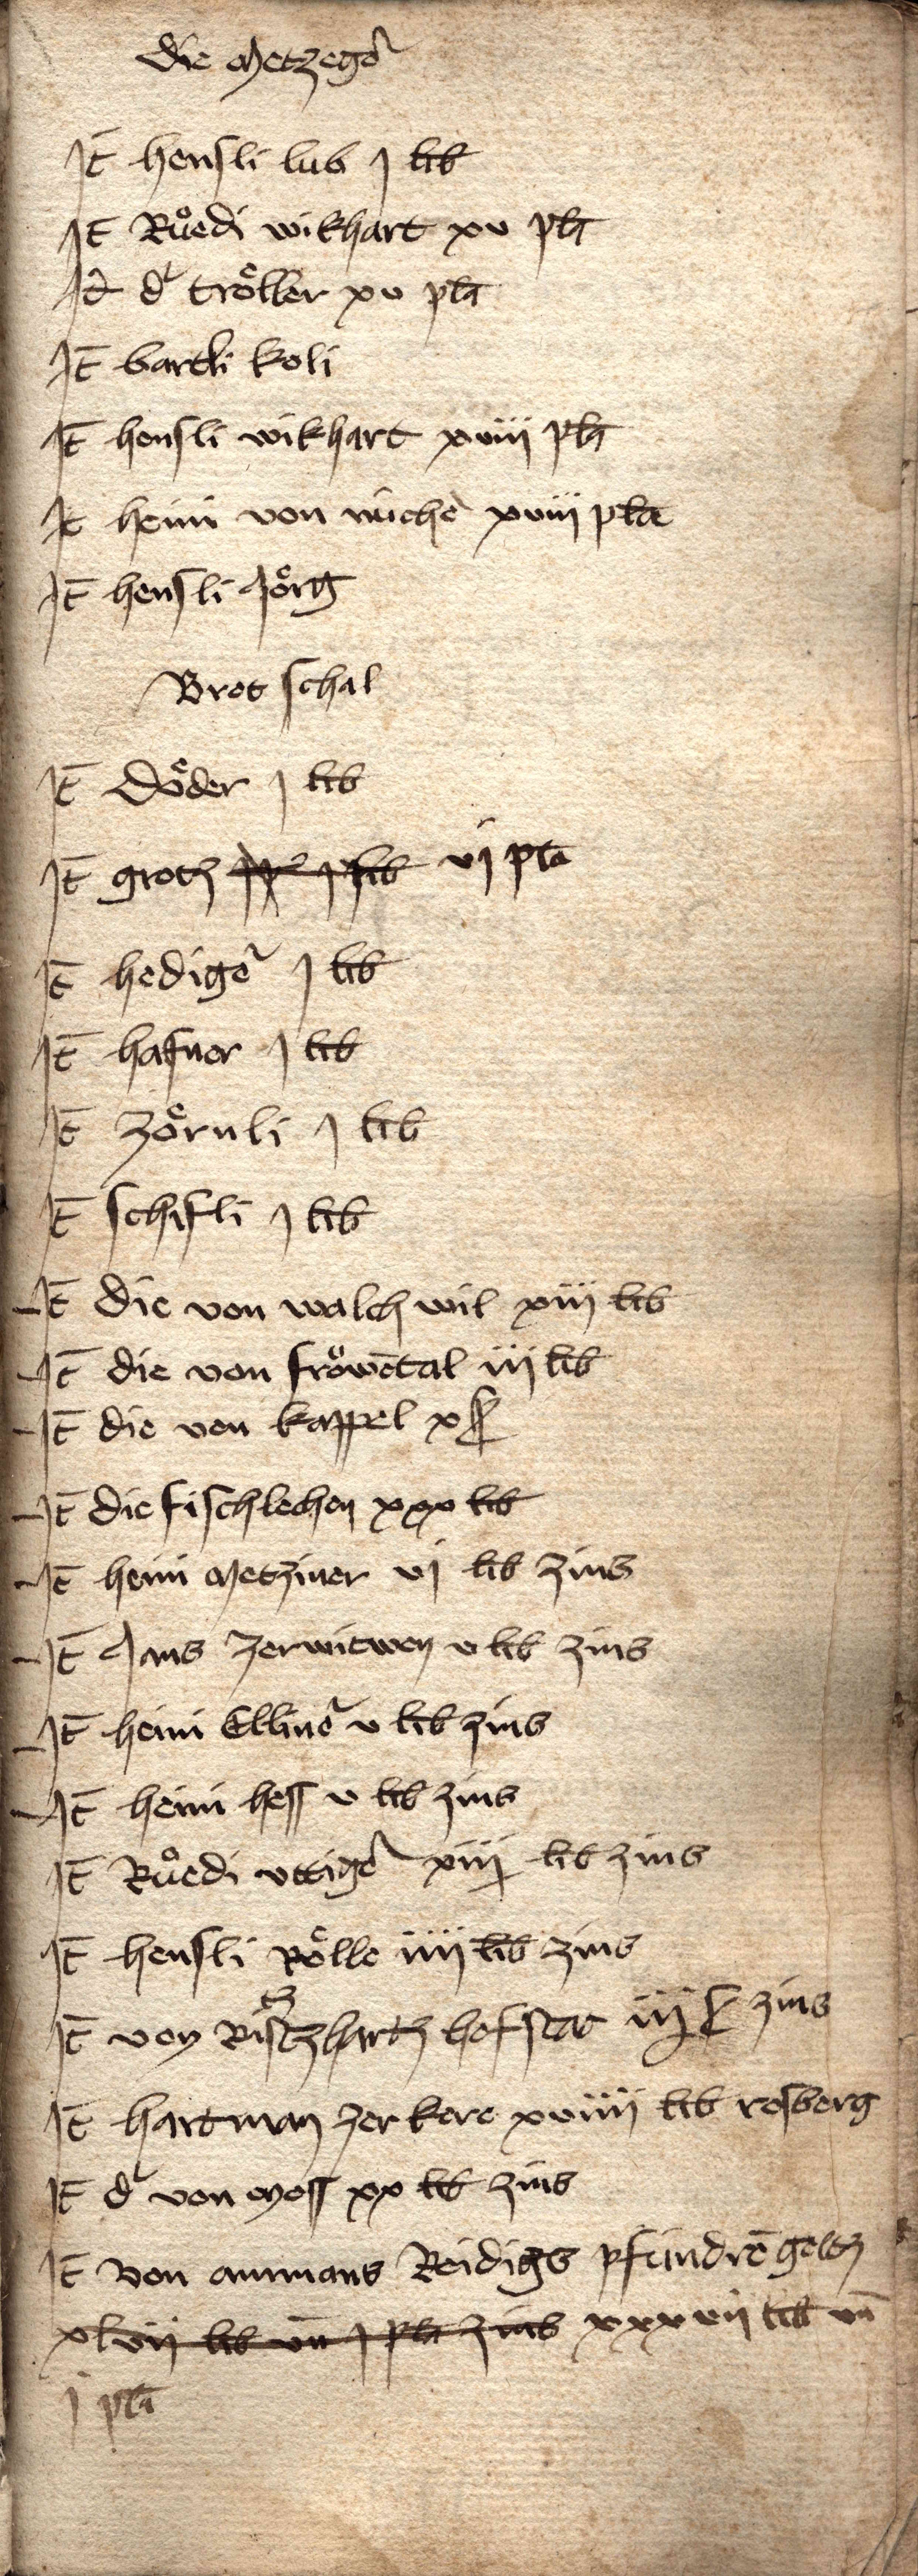 die Metzegˀ
It̄ hensli lub j lib
It̄ Růedi wikhart xv pla̅
It̄ dˀ trőller xv pla̅
It̄ bartli koli
It̄ hensli wikhart xviij pla̅
It̄ heini von xviij pla̅
It̄ hensli Jőrg
Brot schal
It̄ Dőder j lib
It̄ grotz j lib vj pla̅
It̄ hedigˀ j lib
It̄ hafner j lib
It̄ Zőrnli j lib
It̄ schifli j lib
It̄ die von walchwil xiij lib
It̄ die von frőwe̅tal iij lib
It̄ die von kappel x ß
It̄ die fischlechen xxx lib
It̄ heini Metziner vj lib zins
It̄ Jans zerwitwen v lib zins
It̄ heini Ellinˀ v lib zins
It̄ heini hess v lib zins
It̄ Růedi vttigˀ xiij lib zins
It̄ hensli Rőlle iiij lib zins
It̄ von hofstat iij ß zins
It̄ hartman zer kere xviiij lib rosberg
It̄ dˀ von Moss xx lib zins
It̄ von ammans Reidigs pfundre̅ geltz
xlvij lib vn̅ j pla̅ zins xxxvij lib vn̅
j pla̅